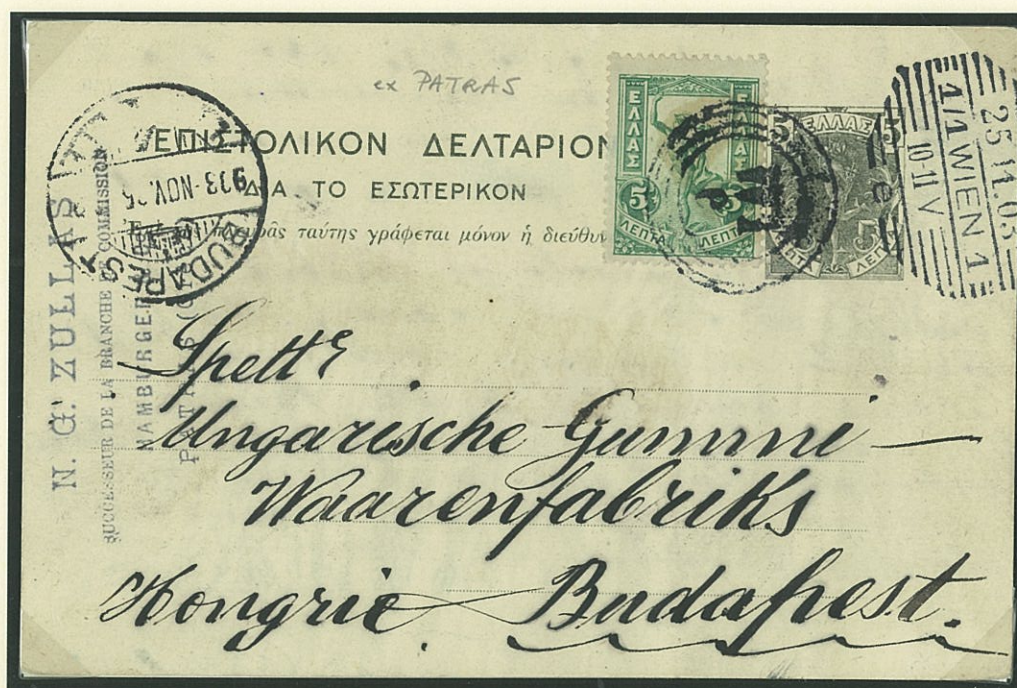 ex PATRAS
ΕΠΙΣΤΟΛΙΚΟΝ ΔΕΛΤΑΡΙΟΝ
ΔΙΑ ΤΟ ΕΣΩΤΕΡΙΚΟΝ
ταύτης γράφεται μόνον ἡ διεύθυν
ΕΛΛΑΣ
5 5
ΛΕΠΤΑ ΛΕΠΤΑ
ΕΛΛΑΣ
5
ΛΕΠ
25 11.03
1/1 WIEN 1
10-11 V
903 NOV.
BUDAPEST
N. G. ZULLAS
SUCCESSEUR DE LA BRANCHE DE COMMISSION
HAMBURGER
PATRAS
Spettᵉ
Ungarische Gummi-
Waarenfabriks
Hongrie. Budapest.